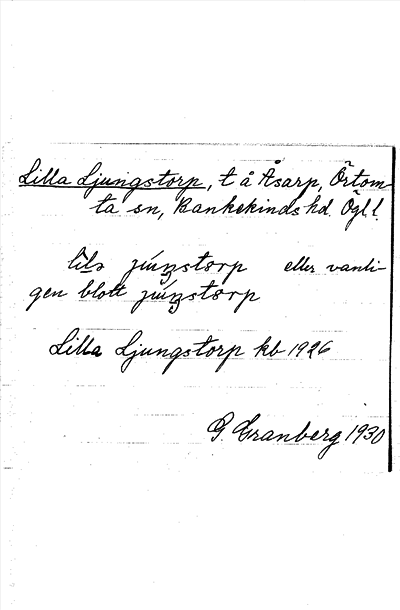 Lilla Ljungstorp, t å Åsarp, Örtom-
ta sn, Bankekinds hd. Ögl.
eller vanli-
gen blott
Lilla Ljungstorp kb 1926
G. Granberg 1930